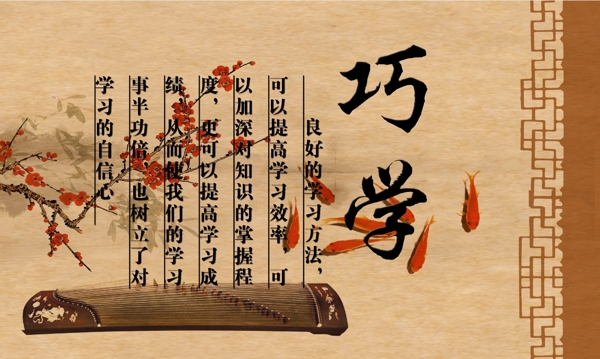 巧学
良好的学习方法，
可以提高学习效率，可
以加深对知识的掌握程
度，更可以提高学习成
绩，从而使我们的学习
事半功倍，也树立了对
学习的自信心